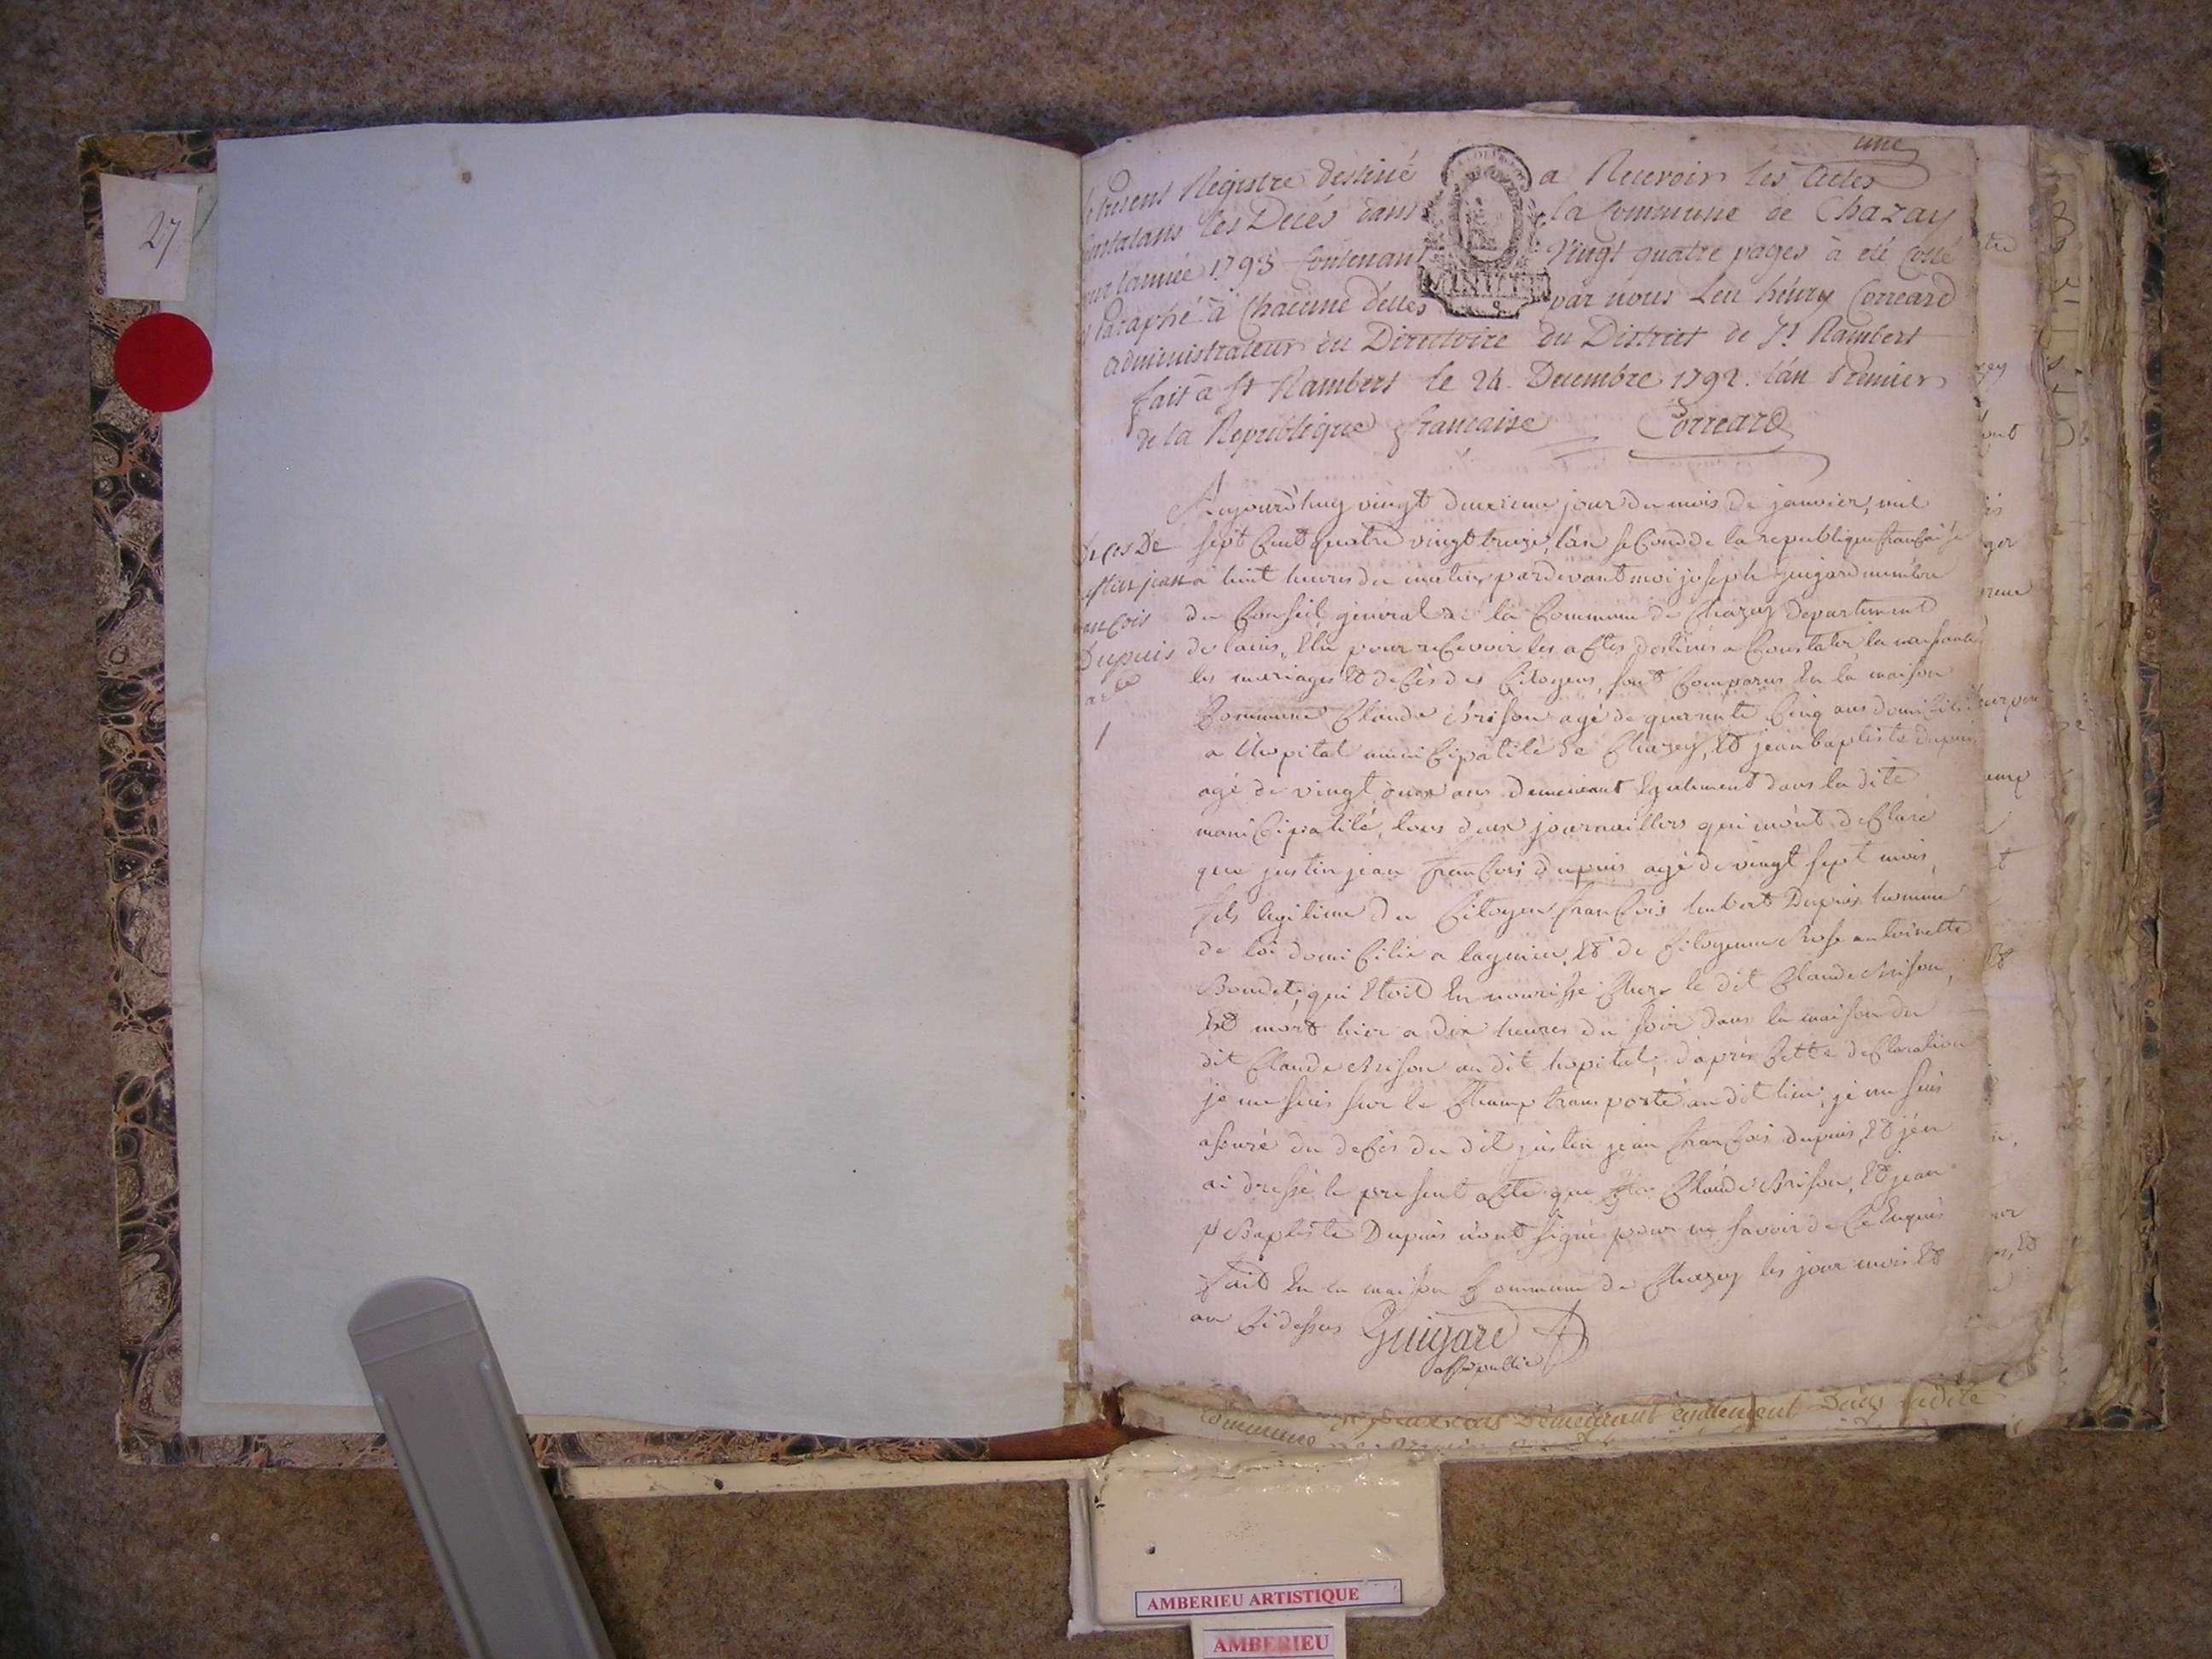 27
une
Present Registre destiné a Recevoir les Actes
Constatans les Decés dans la Commune de Chazay
pour l'année 1793 Contenant Vingt quatre pages à eté Cotté
et Paraphé à Chacune d'elles par nous Leu hénry Correard
MINUTE
administrateur du Directoire du District de St Rambert
fait à St Rambert le 24 Decembre 1792. l'an Premier
de la Republique française Correard
Aujourd'huy vingt deuxieme jour du mois de janvier, mil
sept Cent quatre vingt treize, l'an second de la republique française
a huit heures du matin, pardevant moi joseph guigard membre
du Conseil général de la Commune de Chazey departement
de lain, Elu pour recevoir les actes destinés a Constater la naissance
les mariages Et decès des Citoyens, sont Comparus En la maison
Decés De
justin jean
françois
Dupuis
1
Commune Claude Brison agé de quarante Cinq ans domicilié
a l'hopital municipalité de Chazey, Et jean baptiste dupuis
agé de vingt deux ans demeurant Egalement dans la dite
municipalité, tous deux journailliers qui m'ont déclaré
que justin jean françois dupuis agé de vingt sept mois,
fils legitime du Citoyen françois humbert Dupuis homme
de loi domicilié a lagnieu, Et de Citoyenne Rose antoinette
Boudet, qui Etoit En nourisse Chez le dit Claude Brison,
Est mort hier a dix heures du soir dans la maison du
dit Claude Brison au dit hopital; d'après Cette déclaration
je me suis sur le Champ transporté au dit lieu, je me suis
assuré du decès du dit justin jean françois dupuis, Et j'en
ai dressé le present acte que Claude Brison, Et jean
Baptiste Dupuis n'ont signé pour ne savoir de Ce Enquis
fait En la maison Commune de Chazey les jour mois Et
an Ci dessus Guigard
off. public
Commune demeurant egalement Dans ladite
AMBERIEU ARTISTIQUE
AMBERIEU